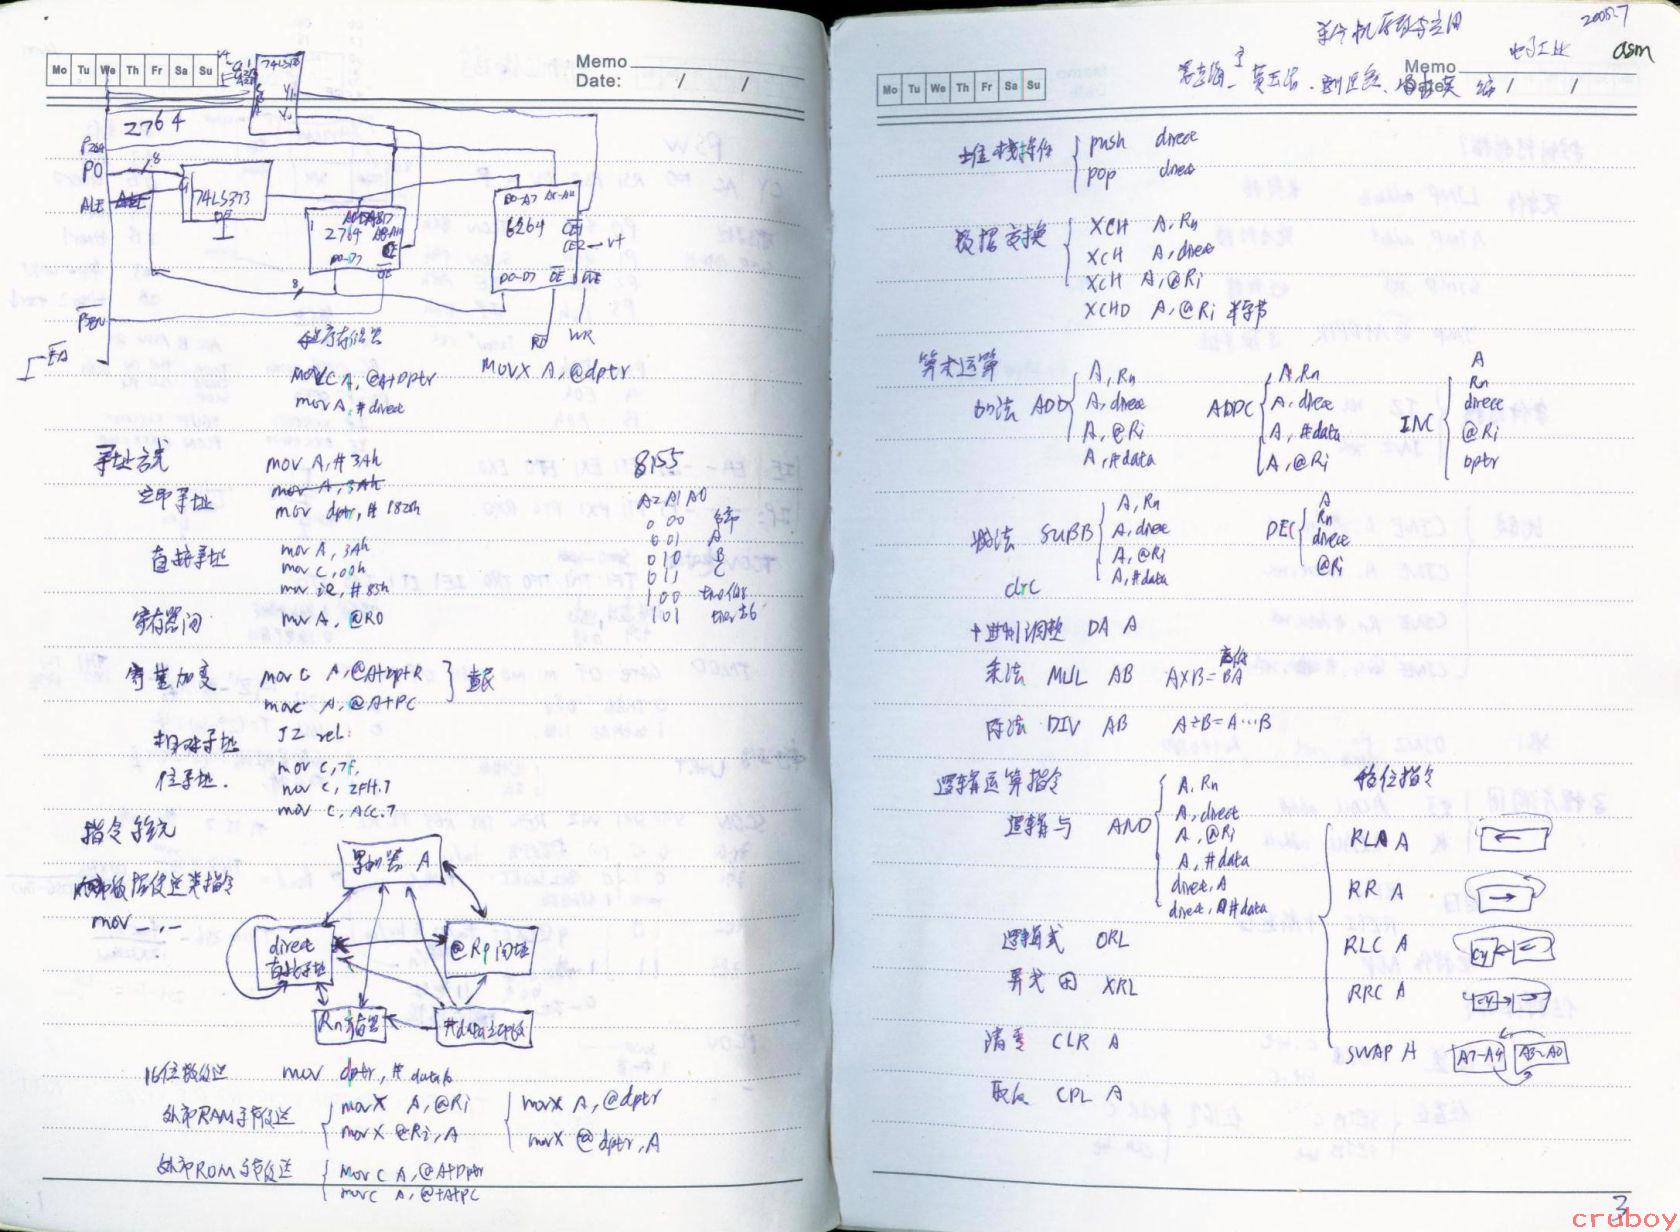 Mo Tu We Th Fr Sa Su
Memo
Date: / /
74LS138
2764
P0
8
ALE
74LS373
OE
2764
D0-D7
OE
8
A0-A7 A8-A12
6264
CE1
CE2
V+
D0-D7 OE WE
RD WR
PSEN
EA
程序存储器
MOVC A, @A+Dptr
mov A, # direct
MOVX A, @dptr
寻址方式
mov A, # 3Ah
立即寻址
mov A, 3Ah
mov dptr, # 1828h
直接寻址
mov A, 3Ah
mov C, 00h
mov ie, # 85h
寄存器间
mov A, @R0
8155
A2 A1 A0
0 0 0
0 0 1 A
0 1 0 B
0 1 1 C
1 0 0
1 0 1
变址
mov C A, @A+DptR
movc A, @A+PC
查表
相对寻址
JZ rel
位寻址.
mov C, 7F,
mov C, 2FH.7
mov C, ACC.7
指令系统
内部数据传送类指令
mov _, _
累加器 A
direct
直接寻址
@Ri 间址
Rn 寄存器
#data 立即数
16位数传送 mov dptr, # data16
外部RAM字节传送
movX A, @Ri
movX @Ri, A
movX A, @dptr
movX @dptr, A
外部ROM字节传送
Movc A, @A+Dptr
movc A, @+A+PC
单片机原理与应用
2005.7
电子工业
asm
Mo Tu We Th Fr Sa Su
Memo
Date: / /
主
编
堆栈操作
push direct
pop direct
数据交换
XCH A, Rn
XCH A, direct
XCH A, @Ri
XCHD A, @Ri 半字节
算术运算
加法 ADD
A, Rn
A, direct
A, @Ri
A, #data
ADDC
A, Rn
A, direct
A, #data
A, @Ri
INC
A
Rn
direct
@Ri
Dptr
减法 SUBB
A, Rn
A, direct
A, @Ri
A, #data
DEC
A
Rn
direct
@Ri
clrC
十进制调整 DA A
乘法 MUL AB A×B=BA
高低
除法 DIV AB A÷B=A···B
逻辑运算指令
逻辑与 AND
A, Rn
A, direct
A, @Ri
A, #data
direct, A
direct, #data
逻辑或 ORL
异或 XRL
清零 CLR A
取反 CPL A
移位指令
RLA A
RR A
RLC A
CY
RRC A
CY
SWAP A
A7-A4
A3-A0
3
cruboy